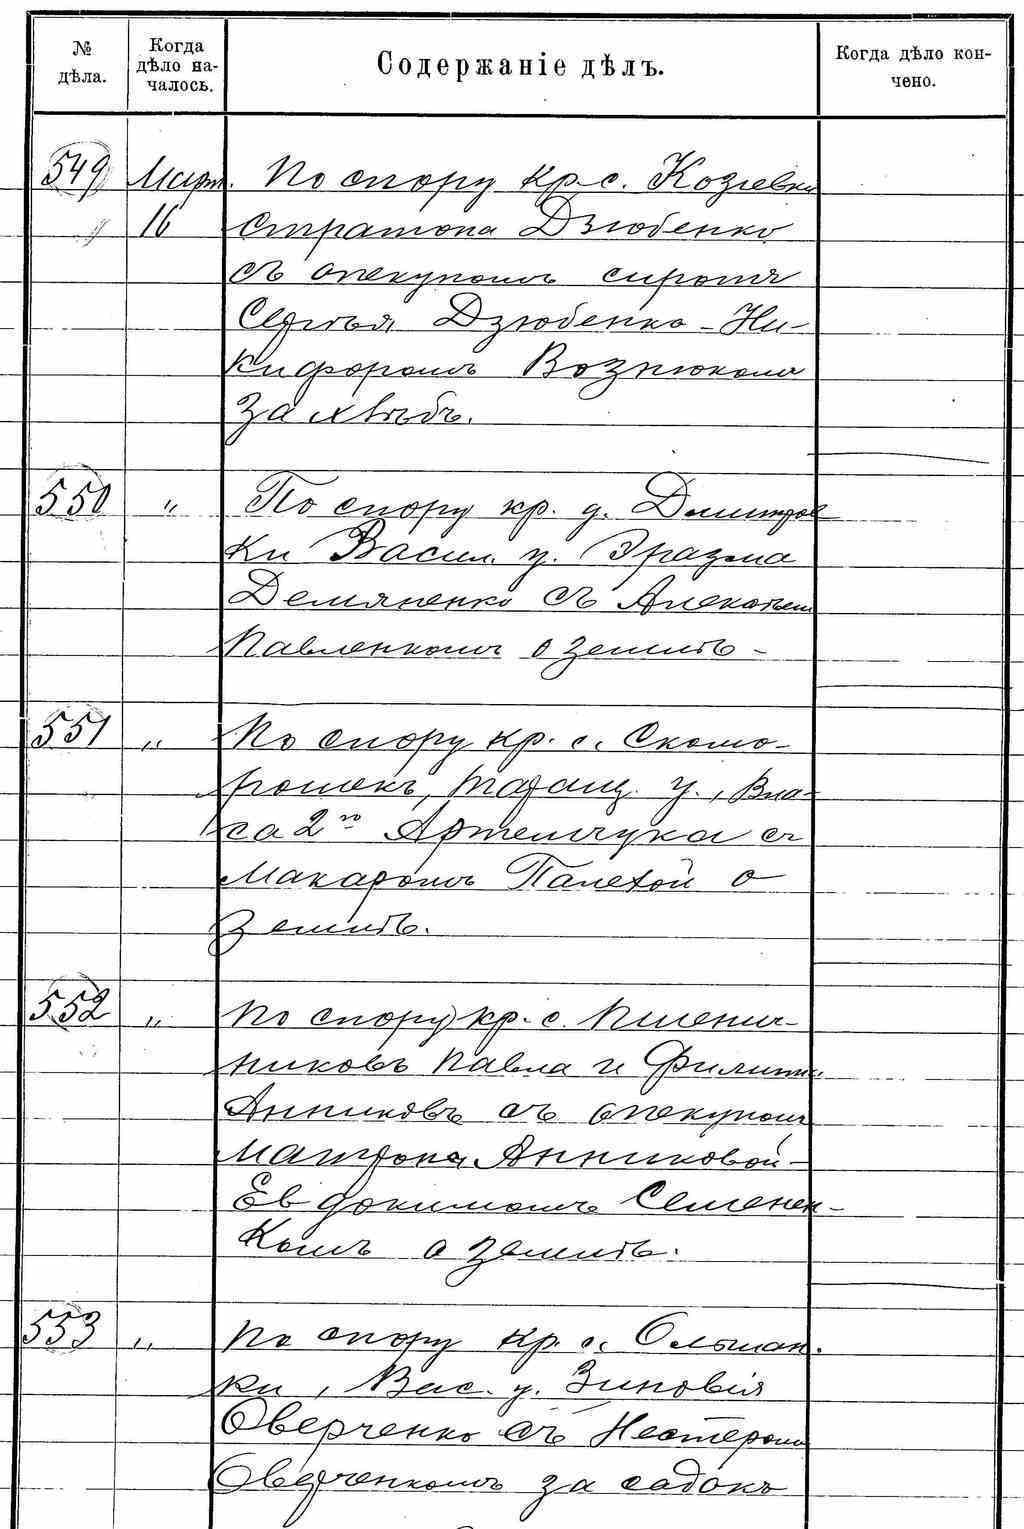 № дѣла.
Когда дѣло на-
чалось.
Содержаніе дѣлъ.
Когда дѣло кон-
чено.
549 Март. По спору кр. с. Козіевки
16 Стратона Дзюбенко
съ опекуномъ сироты
Сергѣя Дзюбенко - Ни-
кифоромъ Вознюкомъ
за хлѣбъ.
550 " По спору кр. д. Дмитров
ки Васил. у. Эразма
Демяненко съ Алексѣем
Павленкомъ о землѣ -
551 " По спору кр. с. Скомо-
рошекъ, Таращ. у., Вла-
са 2го Артемчука съ
Макаромъ Палехой о
землѣ.
552 " По спору кр. с. Пшенич-
никовъ Павла и Филиппа
Анниковъ съ опекуном
Матроны Анниковой -
Евдокимомъ Семенен-
комъ о землѣ.
553 " По спору кр. с. Ольшан-
ки, Вас. у. Зиновія
Оверченко съ Нестером
Оверченкомъ за садокъ